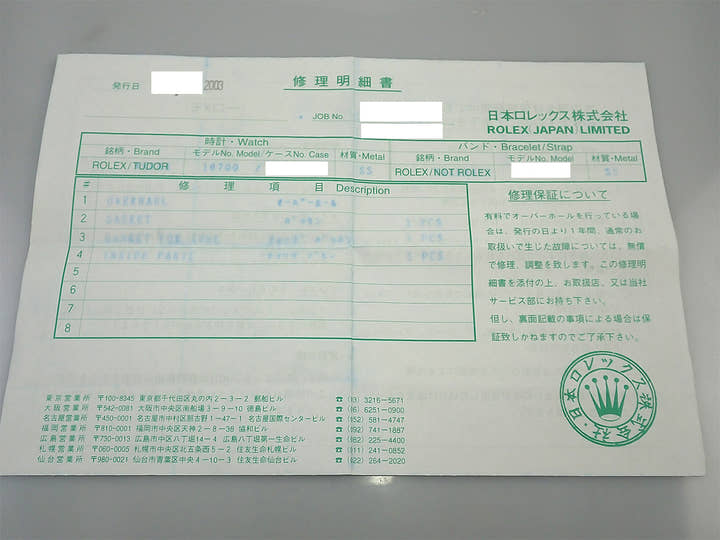 修理明細書
発行日 2003
JOB No.
日本ロレックス株式会社
ROLEX(JAPAN)LIMITED
時計・Watch
バンド・Bracelet/Strap
銘柄・Brand モデルNo. Model/ケースNo. Case 材質・Metal 銘柄・Brand モデルNo. Model 材質・Metal
ROLEX/TUDOR 16700 / SS ROLEX/NOT ROLEX SS
# 修理項目 Description
1 OVERHAUL オーバーホール
2 GASKET パッキン 2 PCS
3 PCS
4 INSIDE PARTS PCS
5
6
7
8
修理保証について
有料でオーバーホールを行っている場
合は、発行の日より1年間、通常のお
取扱いで生じた故障については、無償
で修理、調整を致します。この修理明
細書を添付の上、お取扱店、又は当社
サービス部にお持ち下さい。
但し、裏面記載の事項による場合は保
証致しかねますのでご了承下さい。
日本ロレックス株式会社
東京営業所 〒100-8345 東京都千代田区丸の内2-3-2 郵船ビル ☎(03) 3216-5671
大阪営業所 〒542-0081 大阪市中央区南船場3-9-10 徳島ビル ☎(06) 6251-0900
名古屋営業所 〒450-0001 名古屋市中村区那古野1-47-1 名古屋国際センタービル ☎(052) 581-4747
福岡営業所 〒810-0001 福岡市中央区天神2-8-36 協和ビル ☎(092) 741-1887
広島営業所 〒730-0013 広島市中区八丁堀14-4 広島八丁堀第一生命ビル ☎(082) 225-4400
札幌営業所 〒060-0005 札幌市中央区北五条西5-2 住友生命札幌ビル ☎(011) 241-0852
仙台営業所 〒980-0021 仙台市青葉区中央4-10-3 住友生命仙台ビル ☎(022) 264-2020